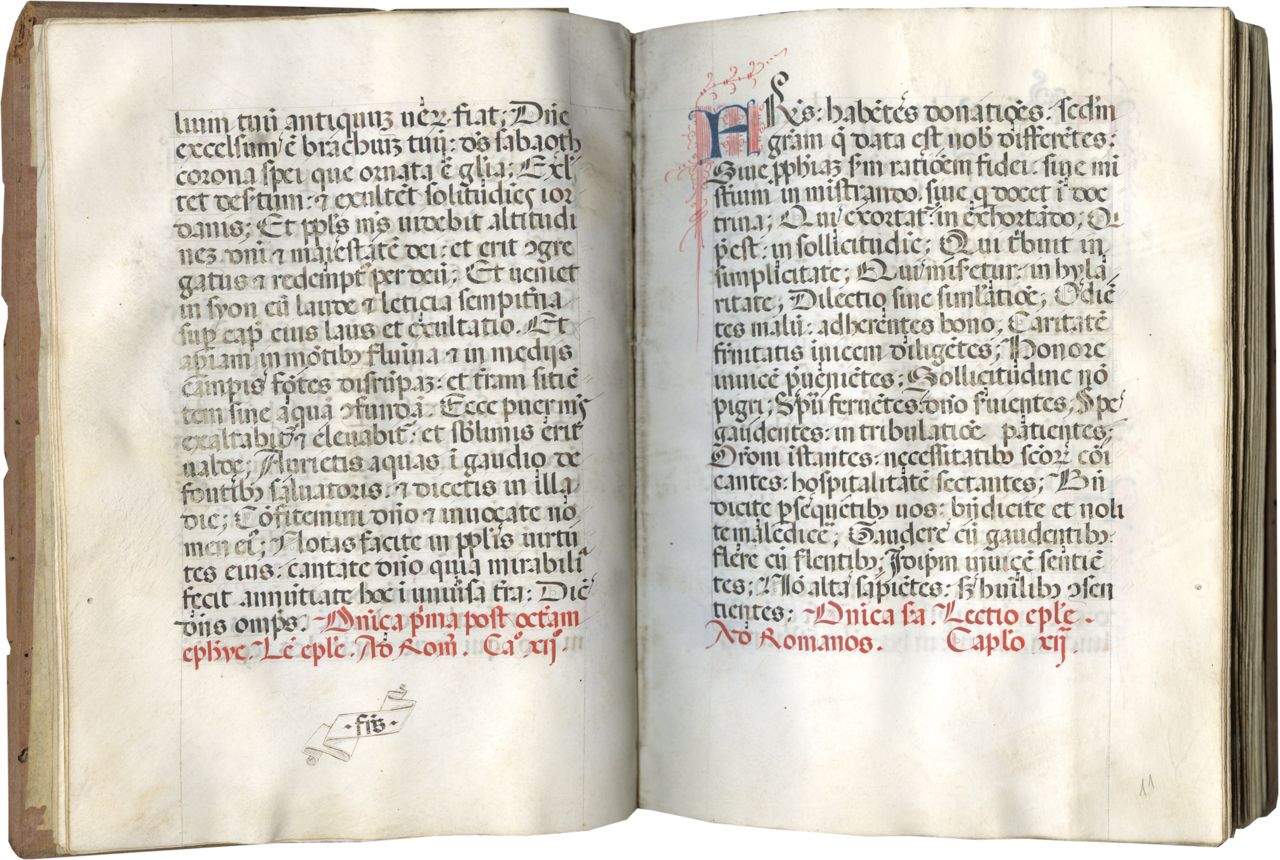 lium tuū antiquuʒ uēꝝ fiat; Dn̄e
excelsum ē brachiuʒ tuū: ds̄ sabaoth
corona spei que ornata ē gl̄ia; Exl̄
tet desertum: ⁊ exultēt solitudiēs ior
danis; Et ppl̄s m̄s uidebit altitudi
neʒ dn̄i ⁊ maiestatē dei: et erit ↄgre
gatus ⁊ redempt᷒ per deū; Et ueniet
in syon cū laude ⁊ leticia sempit̄na
sup̄ cap̄ eius laus et exultatio. Et
ap̄iam in mōtibꝫ flūina ⁊ in medijs
cāmpis fōtes disrūpāʒ: et t̄ram sitiē
tem sine aqua ↄfundā. Ecce puer m̄s
exaltabit᷑ ⁊ eleuabit᷑: et sb̄limis erit
ualde; Aurietis aquas ī gaudio de
fontibꝫ saluatoris: ⁊ dicetis in illa
die; Cōfitemini dn̄o ⁊ inuocate no
men ei᷒; Notas facite in ppl̄is uirtu
tes eius: cantate dn̄o quia mirabilia
fecit annūtiate hoc ī uniūsa t̄ra: Dic̄
dn̄s omp̄s. Dn̄ica p̄ma post octāam
ephȳe. Lē eplē. Ad Rom̄. Caº. xijº
·fiīs·
FR̄es: habētēs donatiōes: sedm̄
gr̄am q̄ data est nob̄ differētes:
Siue ꝓphīaʒ s̄m ratiōem fidei: siue mi
stiūm in mistrando. siue q̄ docet ī doc
trina; Qui exortat᷑ in exhortādo; Q̄
p̄est: in sollicitudīe; Qui t̄buit in
simplicitate; Qui misetur: in hyla
ritate; Dilectio sine siml̄atiōe; Odiē
tes malū: adherētes bono; Caritatē
fr̄nitatis inuicem diligētes; Honore
inuicē p̄uenietes; Sollicitudine nō
pigri; Sp̄u feruētes: dn̄o s̄uientes; Spe
gaudentes: in tribulatiōe patientes:
Orōni īstantes: necessitatibꝫ scōꝝ cōi
cantes: hospitalitatē sectantes; Bn̄
dicite p̄sequētibꝫ uos: bn̄dicite et noli
te maledicē; Gaudere cū gaudentibꝫ:
flere cū flentibꝫ; Idip̄m inuicē sentiē
tes; Nō alta sapiētes: sꝫ hūilibꝫ ↄsen
tientes; Dn̄ica s̄a. Lectio epl̄e.
Ad Romanos. Cap̄lo xij
11